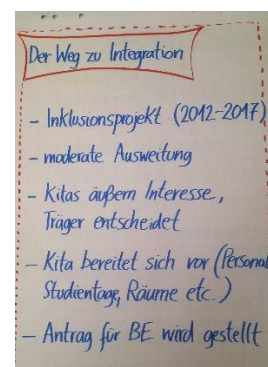 Der Weg zu Integration
– Inklusionsprojekt (2012-2017)
– moderate Ausweitung
– Kitas äußern Interesse,
Träger entscheidet
– Kita bereitet sich vor (Personal
Studientage, Räume etc.)
– Antrag für BE wird gestellt